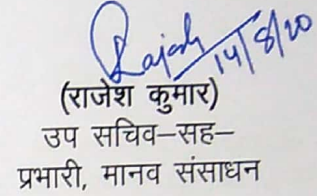 Rajesh
14/8/20
(राजेश कुमार)
उप सचिव-सह-
प्रभारी, मानव संसाधन